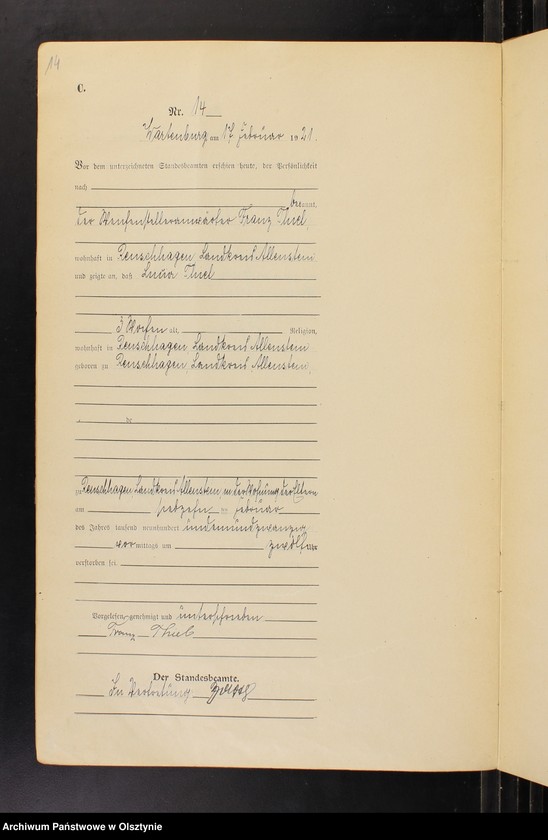 14
C.
Nr. 14
Wartenburg am 17. Februar 1921.
Vor dem unterzeichneten Standesbeamten erschien heute, der Persönlichkeit
nach
bekannt,
der Weichenstelleranwärter Franz Thiel,
wohnhaft in Reuschhagen, Landkreis Allenstein
und zeigte an, daß Lucia Thiel
3 Wochen alt, Religion,
wohnhaft in Reuschhagen, Landkreis Allenstein
geboren zu Reuschhagen, Landkreis Allenstein,
de
zu Reuschhagen Landkreis Allenstein, in der Wohnung der Eltern
am siebzehn ten Februar
des Jahres tausend neunhundert undeinundzwanzig
vor mittags um zwölf Uhr
verstorben sei
Vorgelesen, genehmigt und unterschrieben
Franz Thiel
Der Standesbeamte.
In Vertretung
Archiwum Państwowe w Olsztynie